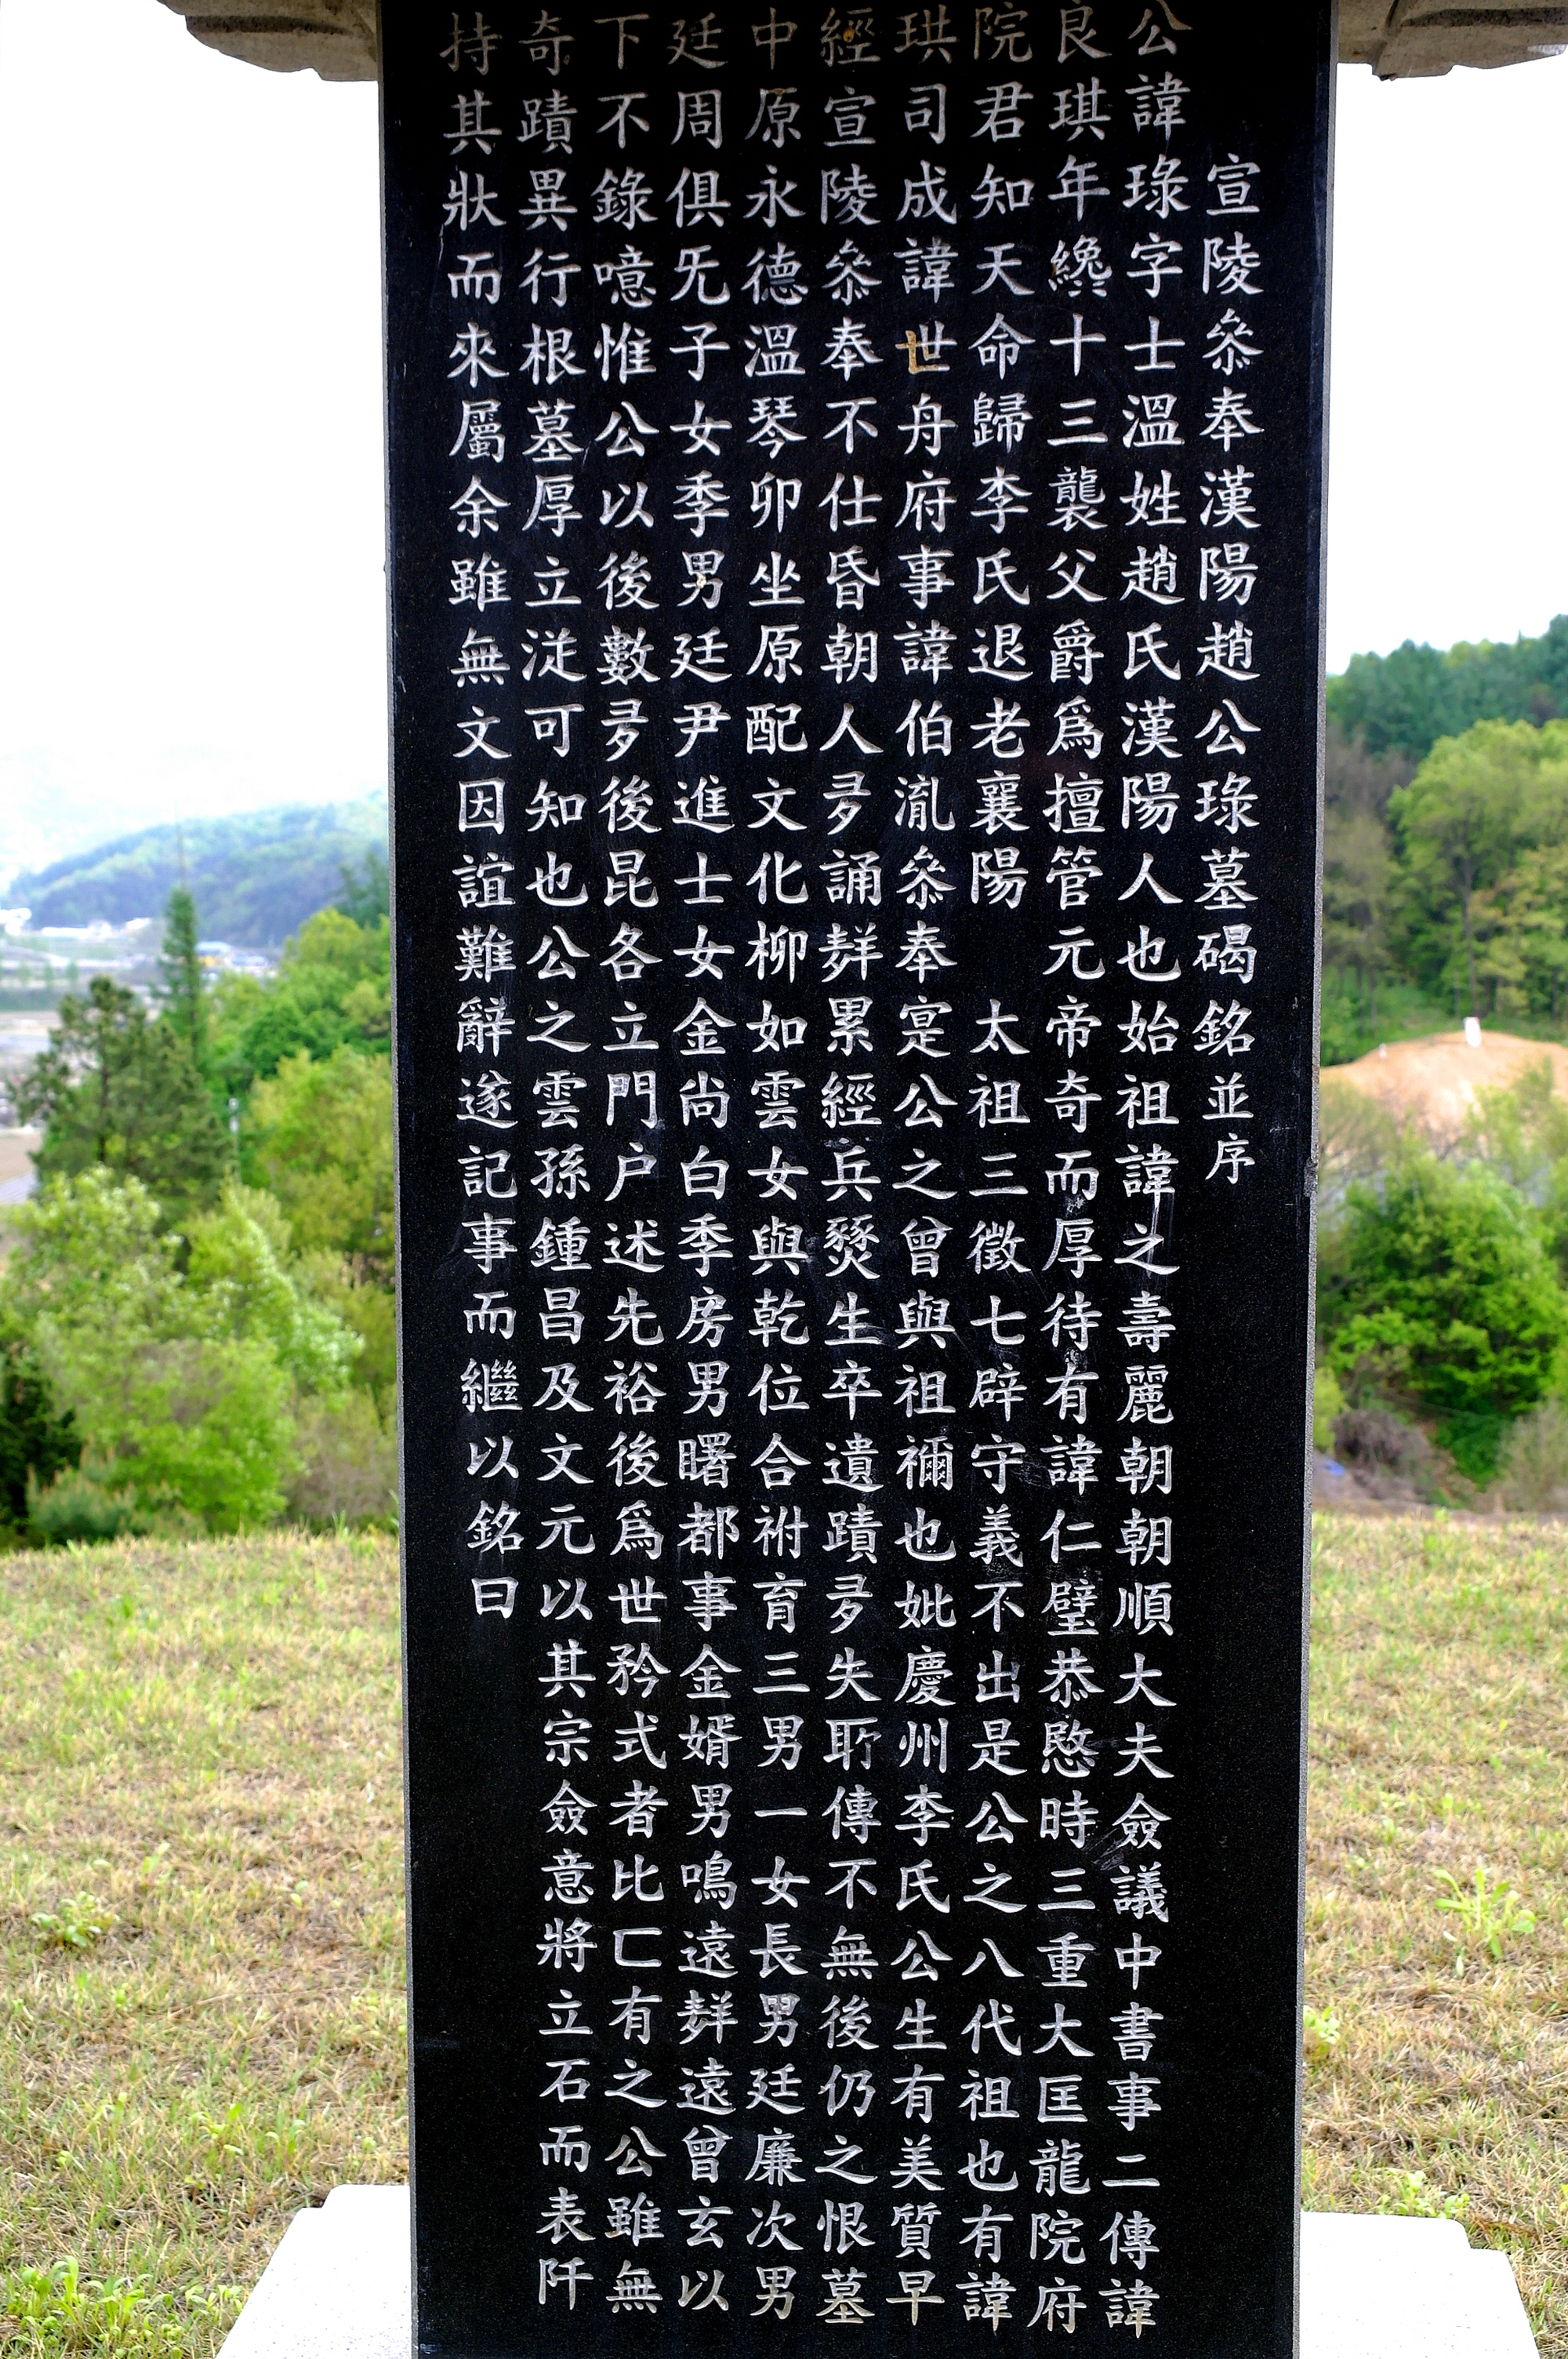 宣陵叅奉漢陽趙公琭墓碣銘並序
公諱琭字士溫姓趙氏漢陽人也始祖諱之壽麗朝朝順大夫僉議中書事二傳諱
良琪年纔十三襲父爵爲擅管元帝奇而厚待有諱仁璧恭愍時三重大匡龍院府
院君知天命歸李氏退老襄陽 太祖三徵七辟守義不出是公之八代祖也有諱
珙司成諱世舟府事諱伯胤叅奉寔公之曾與祖禰也妣慶州李氏公生有美質早
經宣陵叅奉不仕昏朝人多誦辥累經兵燹生卒遺蹟多失聀傳不無後仍之恨墓
中原永德溫琴卯坐原配文化柳如雲女與乾位合祔育三男一女長男廷廉次男
廷周俱旡子女季男廷尹進士女金尚白季房男曙都事金婿男鳴遠辥遠曾玄以
下不錄噫惟公以後數多後昆各立門户述先裕後爲世矜式者比匸有之公雖無
奇蹟異行根墓厚立從可知也公之雲孫鍾昌及文元以其宗僉意將立石而表阡
持其狀而來屬余雖無文因誼難辭遂記事而繼以銘曰